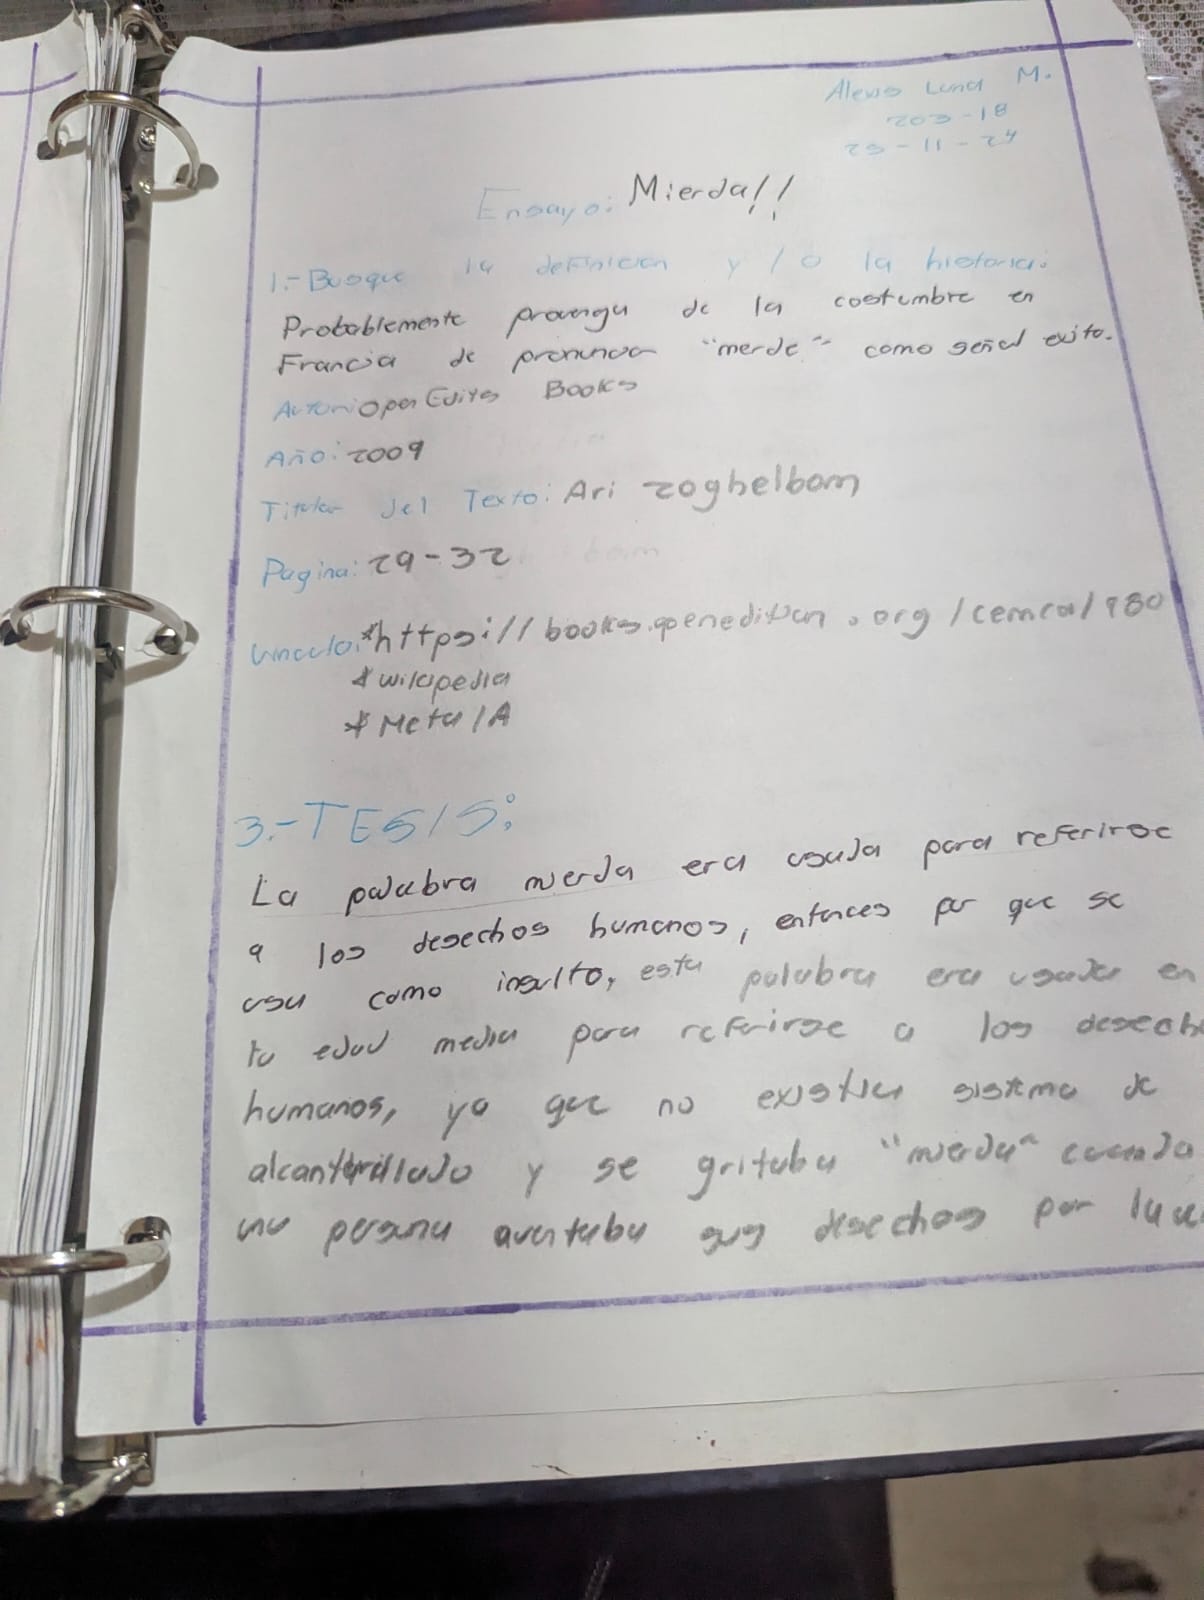 Alexis Luna M.
203-18
25-11-24
Ensayo: Mierda!!
1.- Busque la definicion y/o la historia:
Probablemente provenga de la costumbre en
Francia de pronuncar "merde" como señal exito.
Autor: Open Evites Books
Año: 2009
Titulo del Texto: Ari zoghelbom
Pagina: 29-32
Vinculo: *https://books.openedition.org/cemca/980
* wikipedia
* Meta IA
3.- TESIS:
La palabra mierda era usada para referirse
a los desechos humanos, entonces por que se
usa como insulto, esta palabra era usada en
la edad media para referirse a los desech
humanos, ya que no existia sistema de
alcantarillado y se gritaba "mierda" cuando
una persona aventaba sus desechos por la